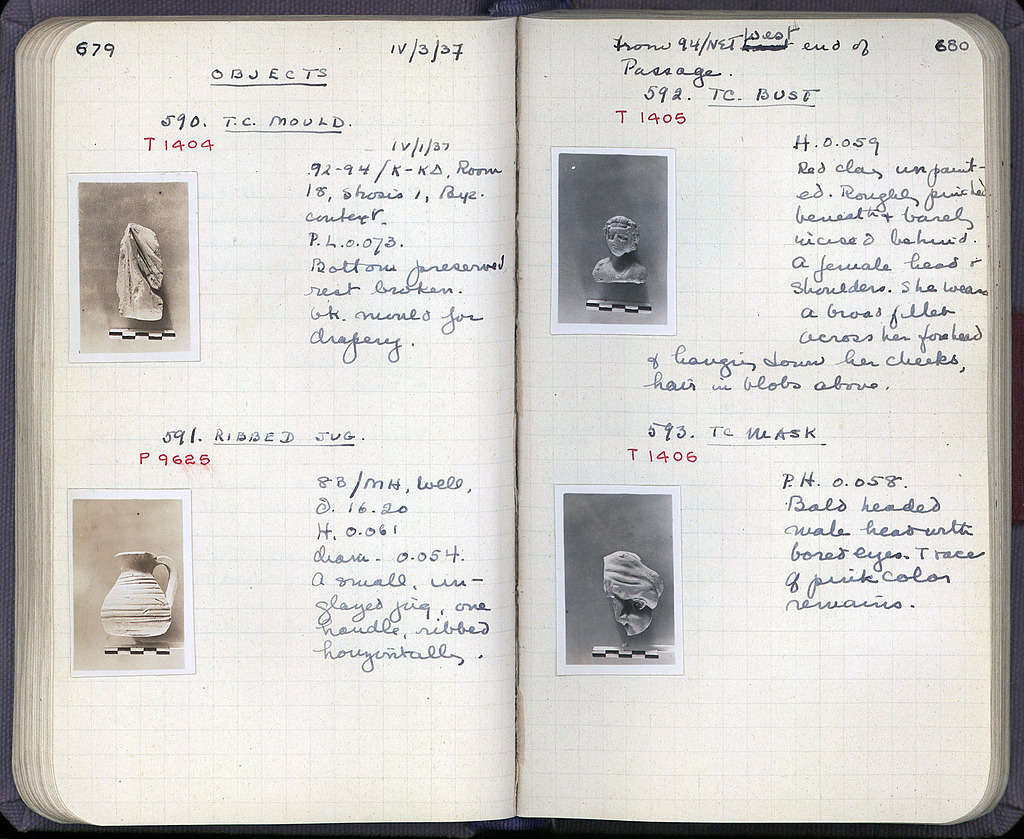 679
IV/3/37
OBJECTS
590. T.C. MOULD.
T 1404
IV/1/37
92-94/K-KΔ, Room
18, Strosis 1, Byz.
context.
P.L. 0.073.
Bottom preserved
rest broken.
Gk. mould for
drapery.
591. RIBBED JUG.
P 9625
83/MH, Well,
d. 16.20
H. 0.061
diam - 0.054.
A small, un-
glazed jug, one
handle, ribbed
horizontally.
680
From 94/NET West end of
Passage.
592. TC. BUST
T 1405
H. 0.059
Red clay unpaint-
ed. Roughly pinched
beneath & barely
incised behind.
A female head &
shoulders. She wears
a broad fillet
across her forehead
& hanging down her cheeks,
hair in blobs above.
593. TC MASK
T 1406
P.H. 0.058.
Bald headed
male head with
bored eyes. Trace
of pink color
remains.